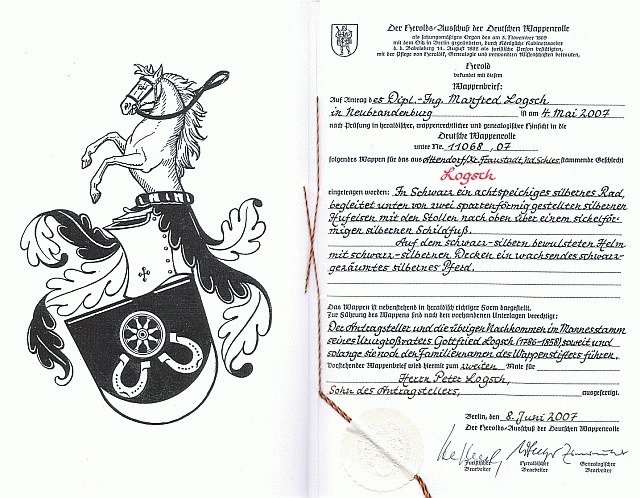 Der Herolds-Ausschuß der Deutschen Wappenrolle
als satzungsmäßiges Organ des am 3. November 1869
mit dem Sitz in Berlin gegründeten, durch Königliche Kabinettsorder
d. d. Babelsberg 14. August 1882 als juristische Person bestätigten,
mit der Pflege von Heraldik, Genealogie und verwandten Wissenschaften betrauten,
Herold
bekundet mit diesem
Wappenbrief:
Auf Antrag des Dipl.-Ing. Manfred Logsch
in Neubrandenburg ist am 4. Mai 2007
nach Prüfung in heraldischer, wappenrechtlicher und genealogischer Hinsicht in die
Deutsche Wappenrolle
unter Nr. 11068, 07
folgendes Wappen für das aus Attendorf/Kr. Fraustadt, Nd. Schles. stammende Geschlecht
Logsch
eingetragen worden: In Schwarz ein achtspeichiges silbernes Rad,
begleitet unten von zwei sparrenförmig gestellten silbernen
Hufeisen mit den Stollen nach oben über einem sichelför-
migen silbernen Schildfuß.
Auf dem schwarz-silbern bewulsteten Helm
mit schwarz-silbernen Decken ein wachsendes schwarz-
gezäumtes silbernes Pferd.
Das Wappen ist nebenstehend in heraldisch richtiger Form dargestellt.
Zur Führung des Wappens sind nach den vorhandenen Unterlagen berechtigt:
Der Antragsteller und die übrigen Nachkommen im Mannesstamm
seines Ururgroßvaters Gottfried Logsch (1786-1858) soweit und
solange sie noch den Familiennamen des Wappenstifters führen.
Vorstehender Wappenbrief wird hiermit zum zweiten Male für
Herrn Peter Logsch,
Sohn des Antragstellers, ausgefertigt.
Berlin, den 8. Juni 2007
Der Herolds-Ausschuß der Deutschen Wappenrolle
Juristischer Heraldischer Genealogischer
Bearbeiter Bearbeiter Bearbeiter